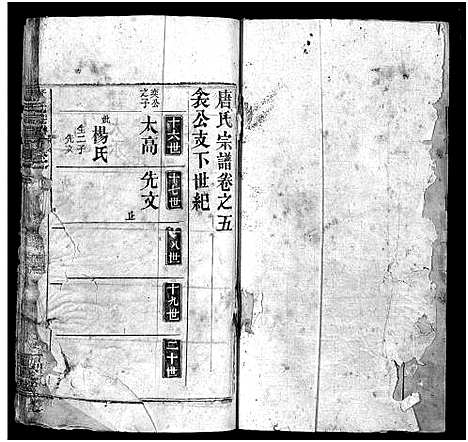 唐氏宗譜卷之五
衾公支下世紀
十六世
十七世
十八世
十九世
二十世
奕公之子
太高
先文
止
楊氏
生二子
先文